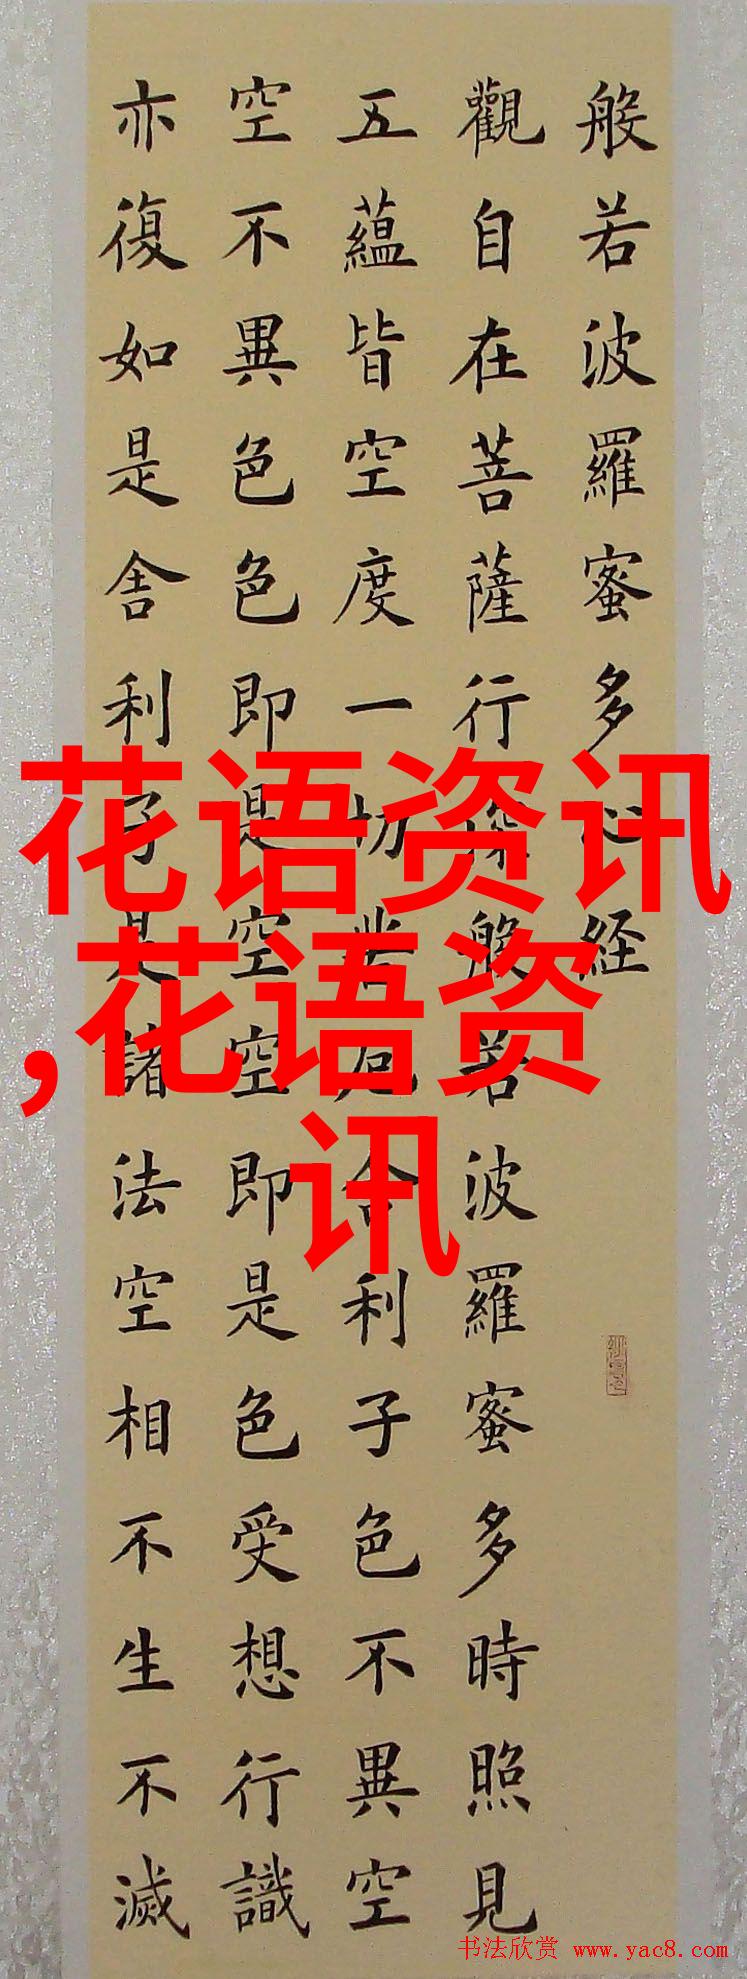 般若波羅蜜多心経
觀自在菩薩行深般若波羅蜜多時照見
五蘊皆空度一切苦厄舍利子色不異空
空不異色色即是空空即是色受想行識
亦復如是舍利子是諸法空相不生不滅
花语资讯
,花语资
讯
书法欣赏 www.yac8.com